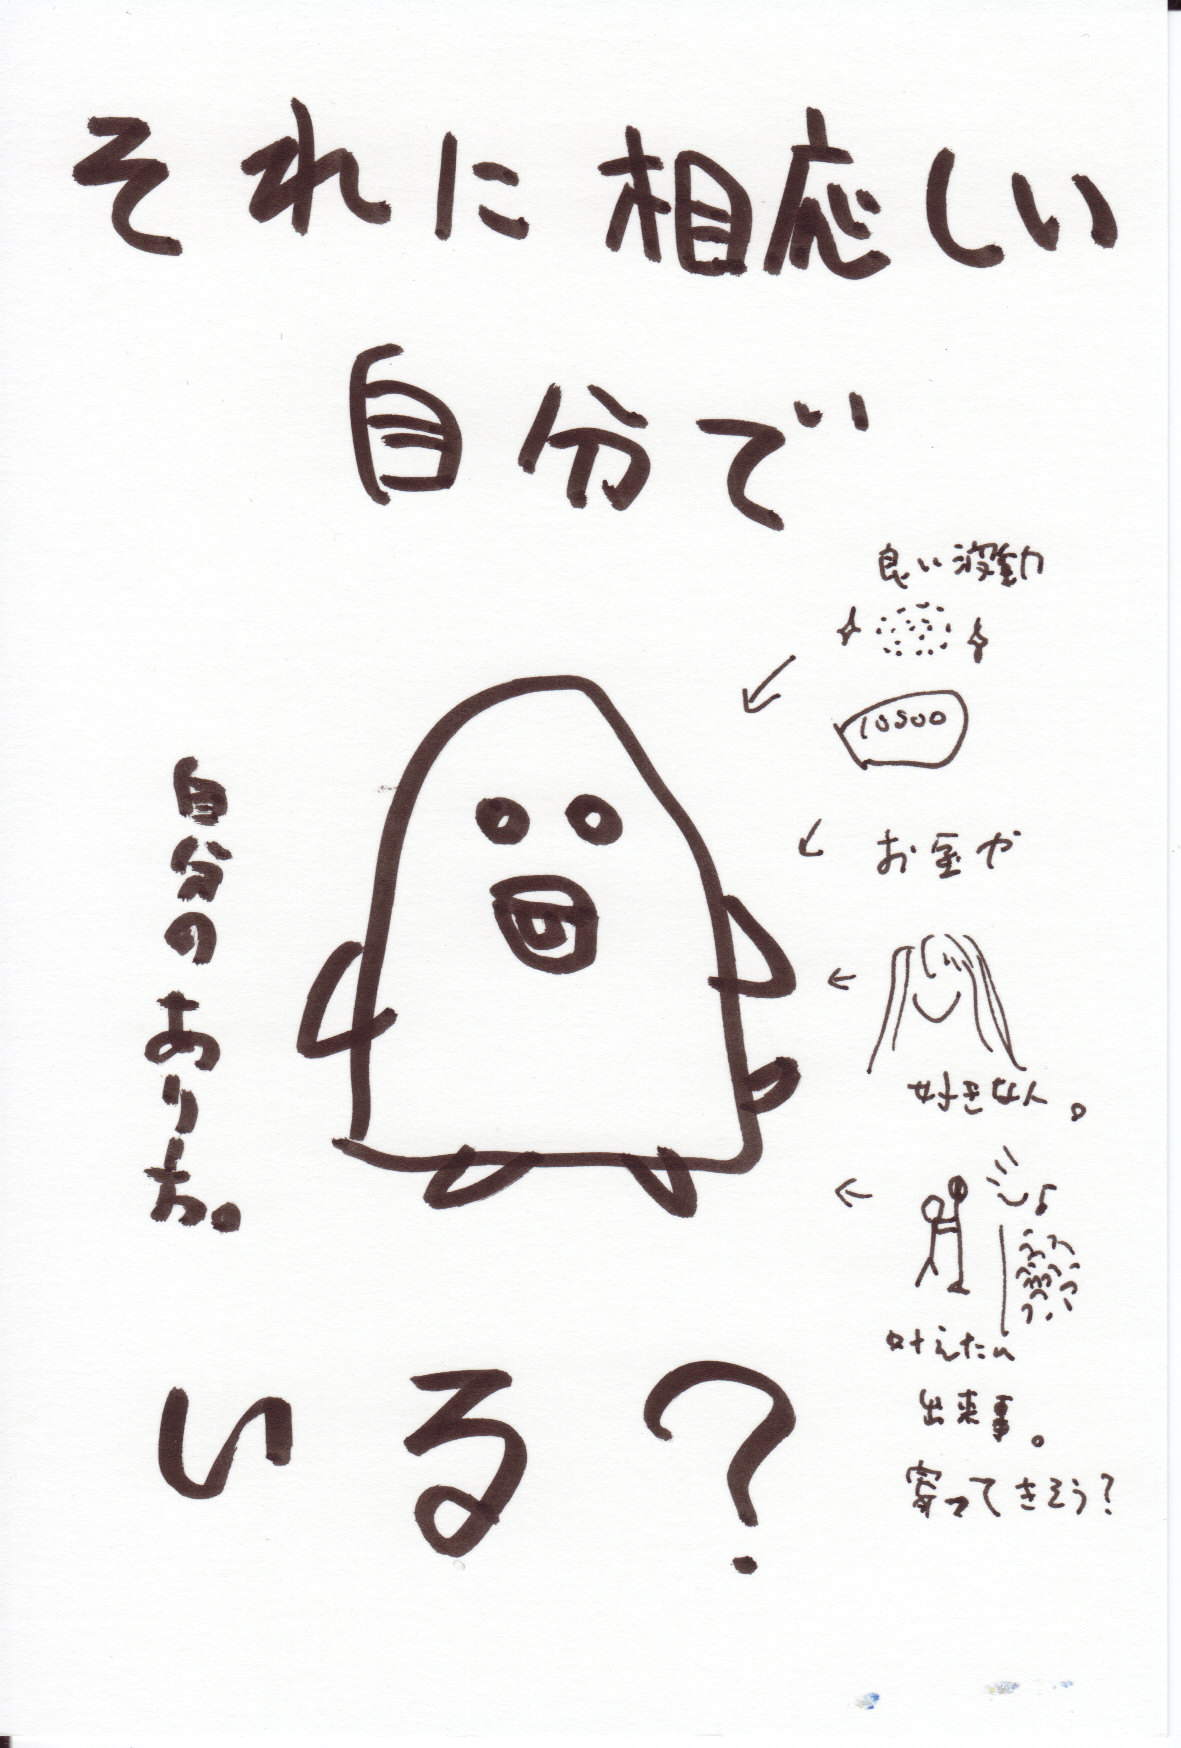 それに相応しい
自分で
良い波動
10000
お金や
好きな人。
叶えたい
出来事。
寄ってきそう?
自分のあり方。
いる?